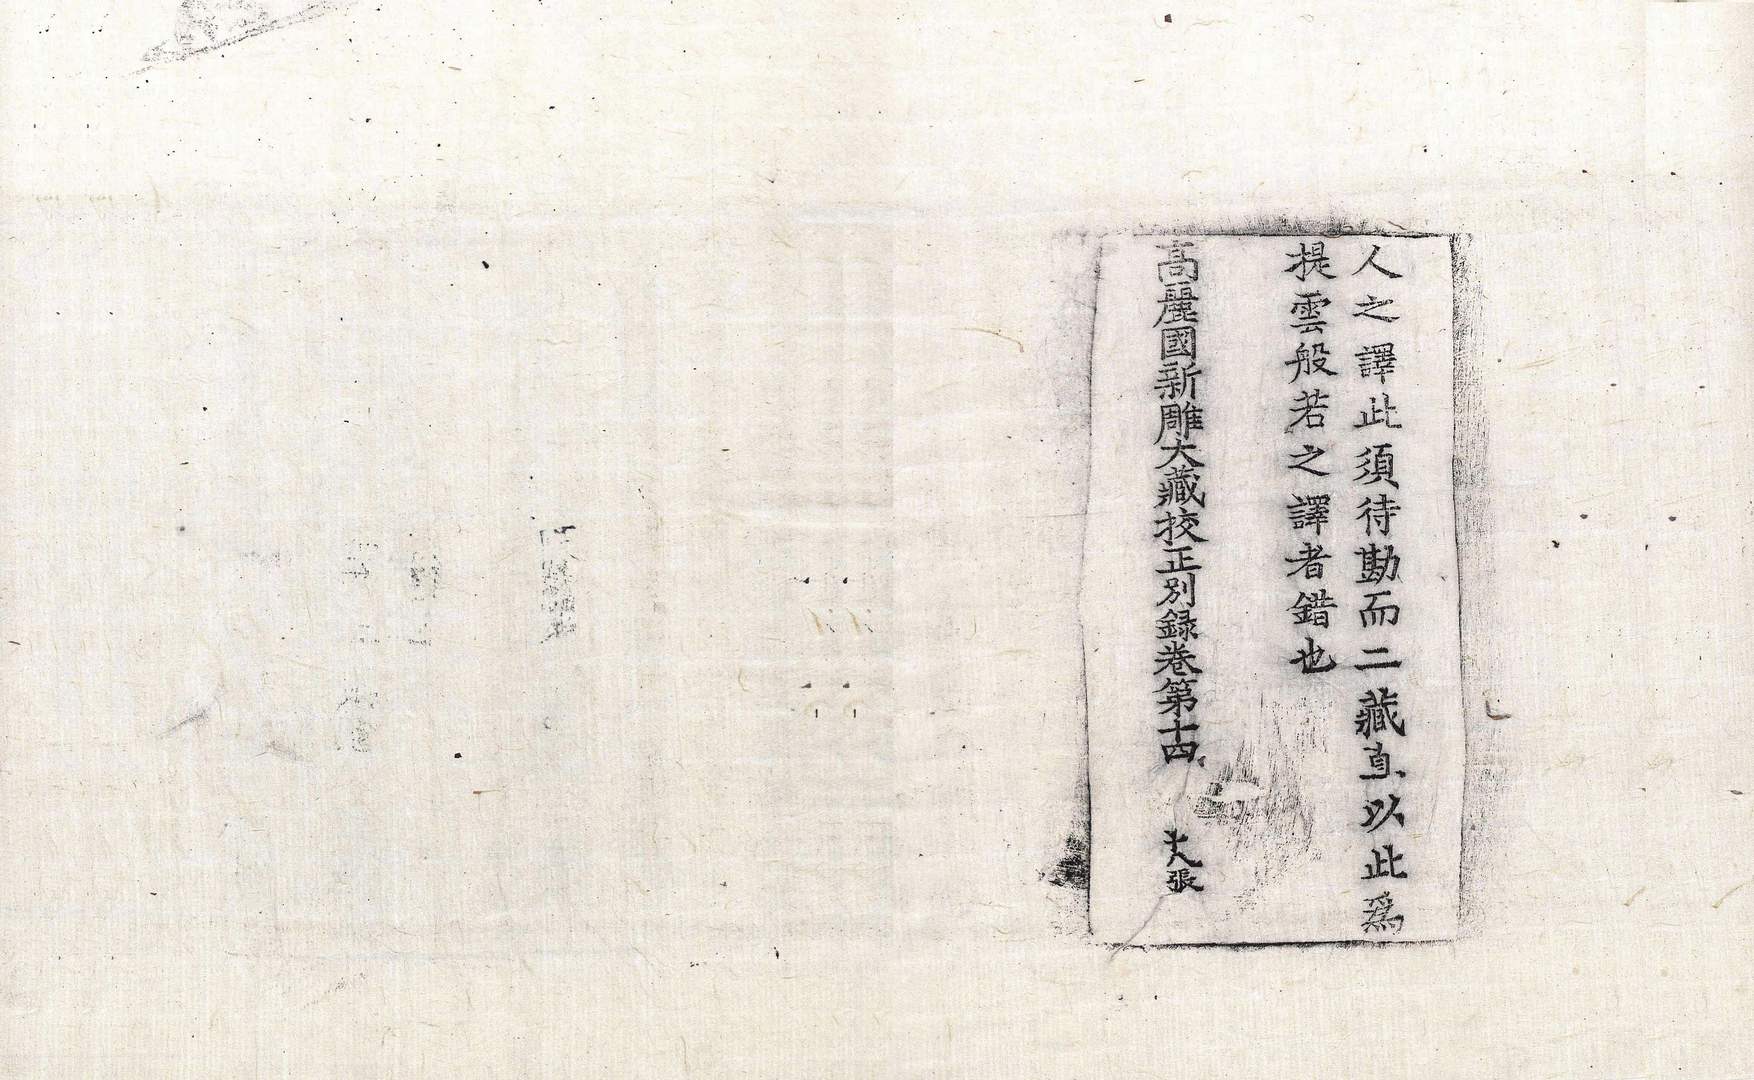 人之譯此須待勘而二藏直以此爲
提雲般若之譯者錯也
高麗國新雕大藏挍正別録卷第十四
十八張